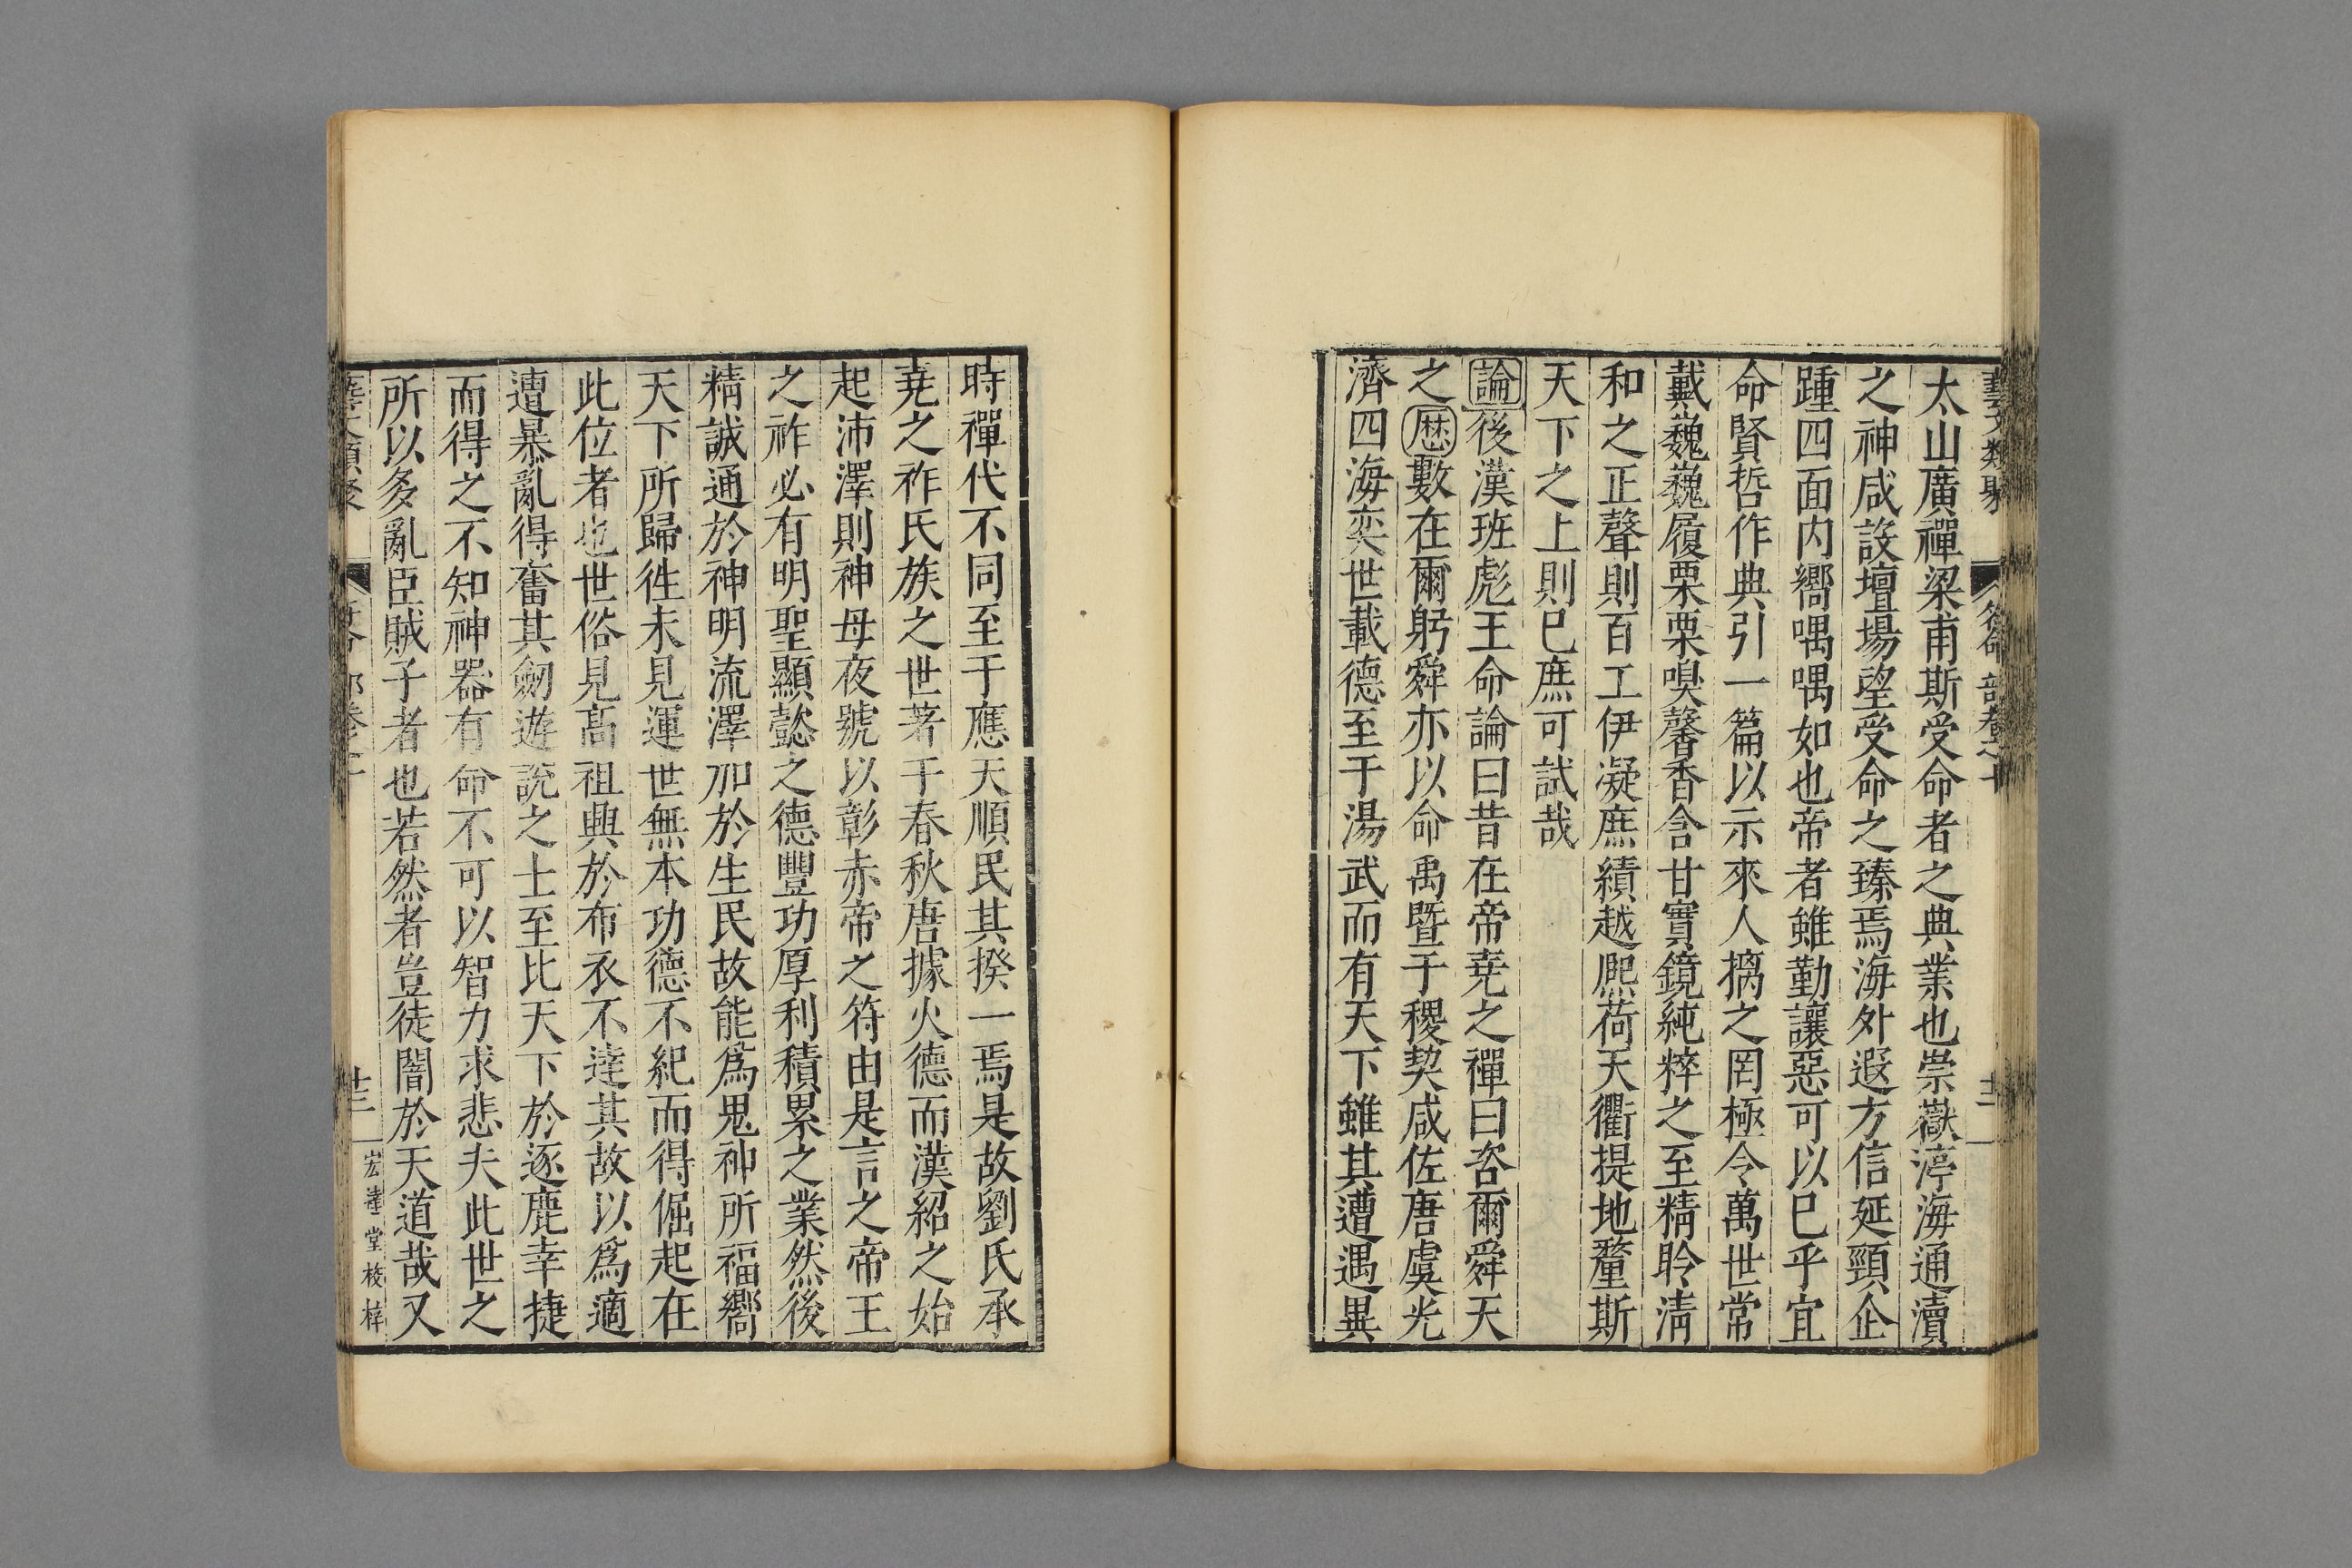 藝文類聚 符命部卷之十 十二
太山廣禪梁甫斯受命者之典業也崇嶽渟海通瀆
之神咸設壇場望受命之臻焉海外遐方信延頸企
踵四面内嚮喁喁如也帝者雖勤讓惡可以巳乎宜
命賢哲作典引一篇以示來人摛之罔極令萬世常
戴巍巍履栗栗嗅馨香含甘實鏡純粹之至精聆淸
和之正聲則百工伊凝庶績越熈荷天衢提地釐斯
天下之上則巳庶可試哉
論後漢班彪王命論曰昔在帝堯之禪曰咨爾舜天
之歷數在爾躬舜亦以命禹暨于稷契咸佐唐虞光
濟四海奕世載德至于湯武而有天下雖其遭遇異
時禪代不同至于應天順民其揆一焉是故劉氏承
堯之祚氏族之世著于春秋唐據火德而漢紹之始
起沛澤則神母夜號以彰赤帝之符由是言之帝王
之祚必有明聖顯懿之德豐功厚利積累之業然後
精誠通於神明流澤加於生民故能爲鬼神所福嚮
天下所歸徃未見運世無本功德不紀而得倔起在
此位者也世俗見髙祖興於布衣不達其故以爲適
遭暴亂得奮其劒遊說之士至比天下於逐鹿幸捷
而得之不知神器有命不可以智力求悲夫此世之
所以多亂臣賊子者也若然者豈徒闇於天道哉又
十三 宏達堂校梓